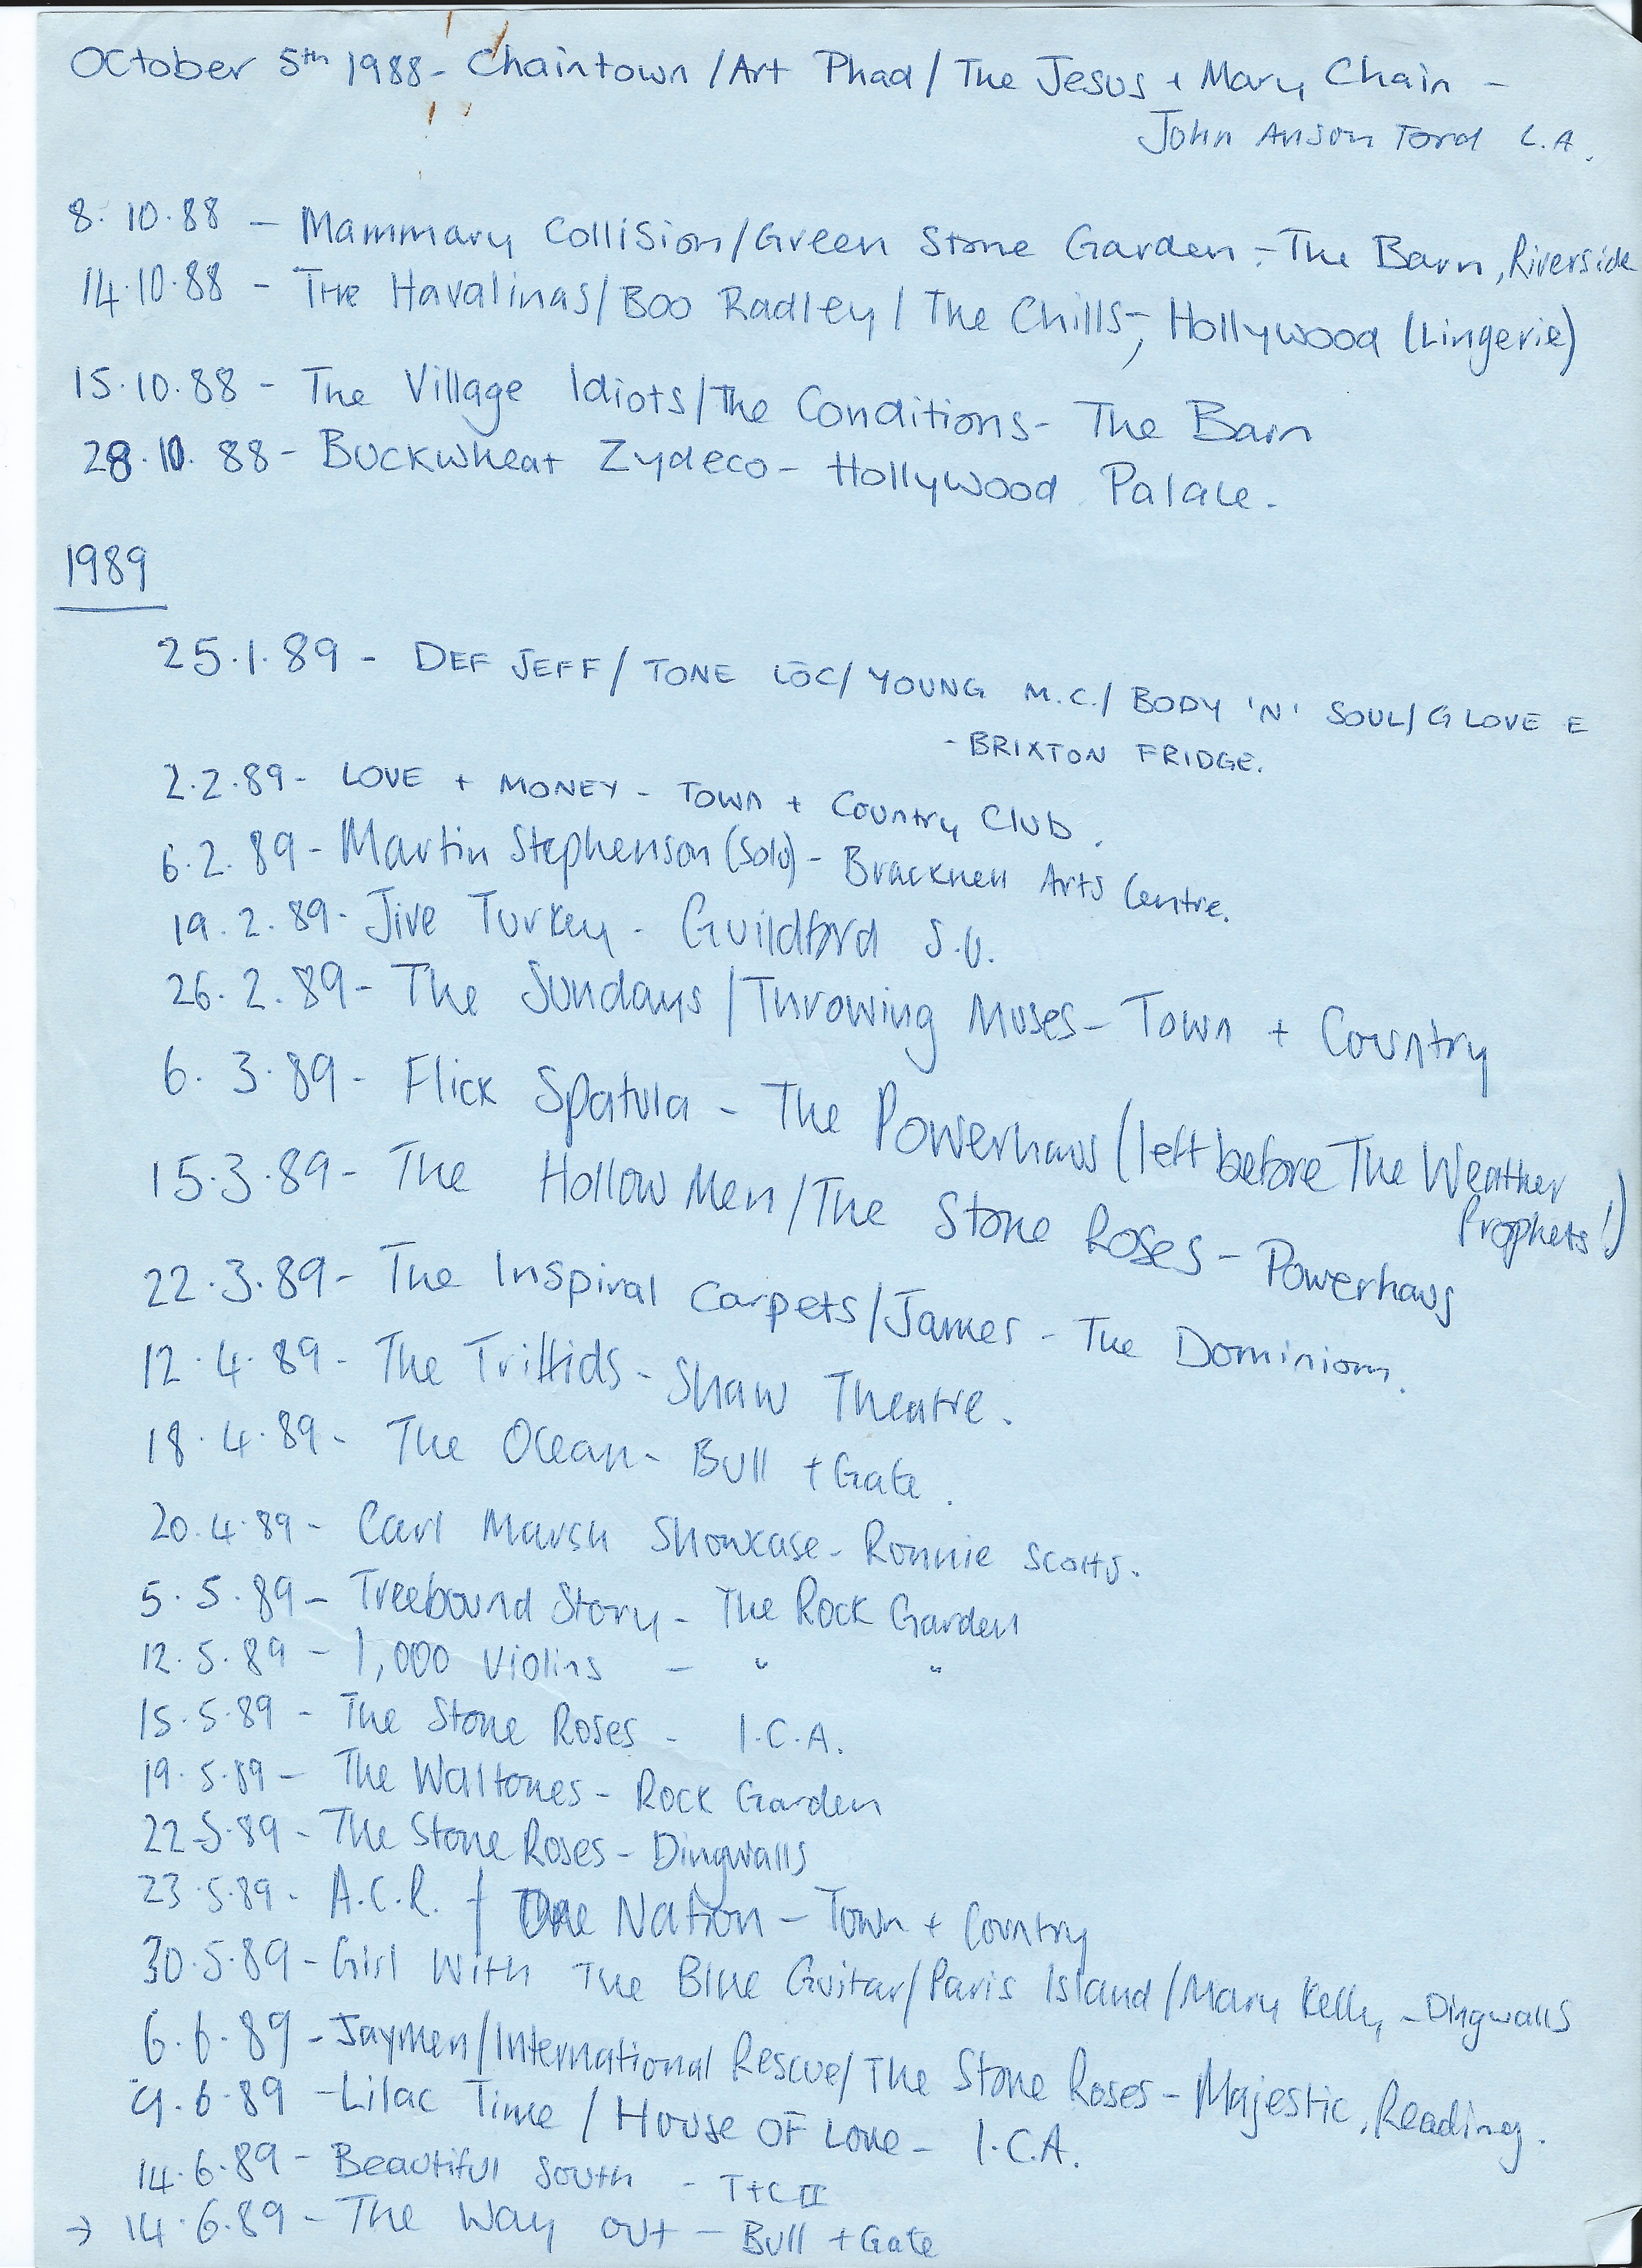 October 5th 1988 - Chaintown / Art Phad / The Jesus + Mary Chain -
John Anson Ford L.A.
8.10.88 - Mammary Collision / Green Stone Garden - The Barn, Riverside
14.10.88 - The Havalinas / Boo Radley / The Chills -, Hollywood (Lingerie)
15.10.88 - The Village Idiots / The Conditions - The Barn
28.10.88 - Buckwheat Zydeco - Hollywood Palace.
1989
25.1.89 - DEF JEFF / TONE LŌC / YOUNG M.C. / BODY 'N' SOUL / GLOVE E
- BRIXTON FRIDGE.
2.2.89 - LOVE + MONEY - Town + Country Club.
6.2.89 - Martin Stephenson (solo) - Bracknell Arts Centre.
19.2.89 - Jive Turkey - Guildford S.U.
26.2.89 - The Sundays / Throwing Muses - Town + Country
6.3.89 - Flick Spatula - The Powerhaus (left before The Weather
Prophets!)
15.3.89 - The Hollow Men / The Stone Roses - Powerhaus
22.3.89 - The Inspiral Carpets / James - The Dominion.
12.4.89 - The Triffids - Shaw Theatre.
18.4.89 - The Ocean - Bull + Gate.
20.4.89 - Carl Marsh Showcase - Ronnie Scotts.
5.5.89 - Treebound Story - The Rock Garden
12.5.89 - 1,000 Violins - " "
15.5.89 - The Stone Roses - I.C.A.
19.5.89 - The Waltones - Rock Garden
22.5.89 - The Stone Roses - Dingwalls
23.5.89 - A.C.R. / One Nation - Town + Country
30.5.89 - Girl With The Blue Guitar / Paris Island / Mary Kelly - Dingwalls
6.6.89 - Jaymen / International Rescue / The Stone Roses - Majestic, Reading.
9.6.89 - Lilac Time / House OF Love - I.C.A.
14.6.89 - Beautiful South - T+C II
→ 14.6.89 - The Way Out - Bull + Gate